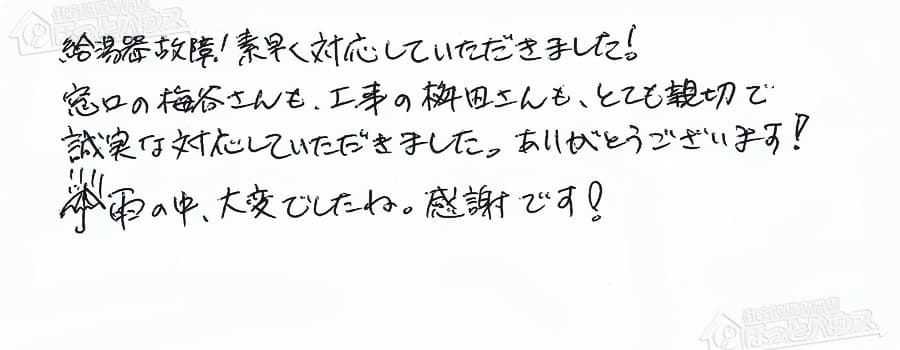 給湯器故障!素早く対応していただきました!
窓口の梅谷さんも、工事の桝田さんも、とても親切で
誠実な対応していただきました。ありがとうございます!
雨の中、大変でしたね。感謝です!
ほっとハウス
ほっとハウス